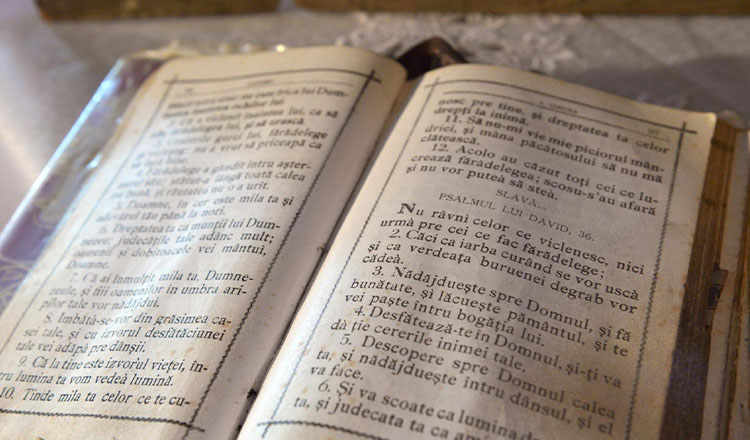 frica lui Dum-
înaintea ochilor lui.
2. Că a viclenit înaintea lui, ca să
fărădelegea lui, și să urască.
3. Cuvintele gurei lui, fărădelege
și vicleșug; nu a vrut să priceapă ca
să facă bine.
4. Fărădelege a gândit întru așter-
nutul său; stătut-a lângă toată calea
nu bună, și răutatea nu o a urit.
5. Doamne, în cer este mila ta și
adevărul tău până la nori.
6. Dreptatea ta ca munții lui Dum-
nezeu; judecățile tale adânc mult;
oamenii și dobitoacele vei mântui,
Doamne.
7. Că ai înmulțit mila ta, Dumne-
zeule, și fiii oamenilor în umbra ari-
pilor tale vor nădăjdui.
8. Îmbăta-se-vor din grăsimea ca-
sei tale, și cu izvorul desfătăciunei
tale vei adăpà pre dânșii.
9. Că la tine este izvorul vieței, în-
tru lumina ta vom vedeà lumină.
10. Tinde mila ta celor ce te cu-
nosc pre tine, și dreptatea ta celor
drepți la inimă.
11. Să nu-mi vie mie piciorul mân-
driei, și mâna păcătosului să nu mă
clătească.
12. Acolo au căzut toți cei ce lu-
crează fărădelegea; scosu-s'au afară
și nu vor puteà să steà.
SLAVĂ...
PSALMUL LUI DAVID, 36.
Nu râvnì celor ce viclenesc, nici
urmà pre cei ce fac fărădelege;
2. Căci ca iarba curând se vor uscà
și ca verdeața buruenei degrab vor
cădeà.
3. Nădăjduește spre Domnul, și fă
bunătate, și lăcuește pământul, și te
vei paște întru bogăția lui.
4. Desfătează-te în Domnul, și-ți va
dà ție cererile inimei tale.
5. Descopere spre Domnul calea
ta, și nădăjduește întru dânsul, și el
va face.
6. Și va scoate ca lumina
ta, și judecata ta ca ami